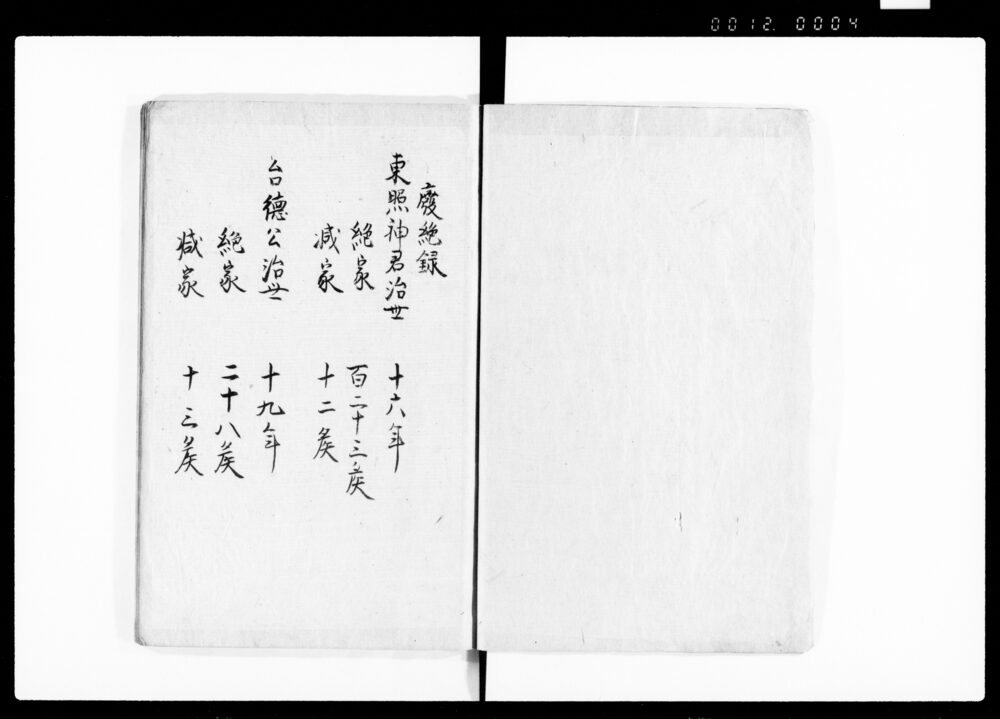 0012. 0004
廃絶録
東照神君治世 十六年
絶家 百二十三侯
減家 十二侯
台德公治世 十九年
絶家 二十八侯
減家 十三侯